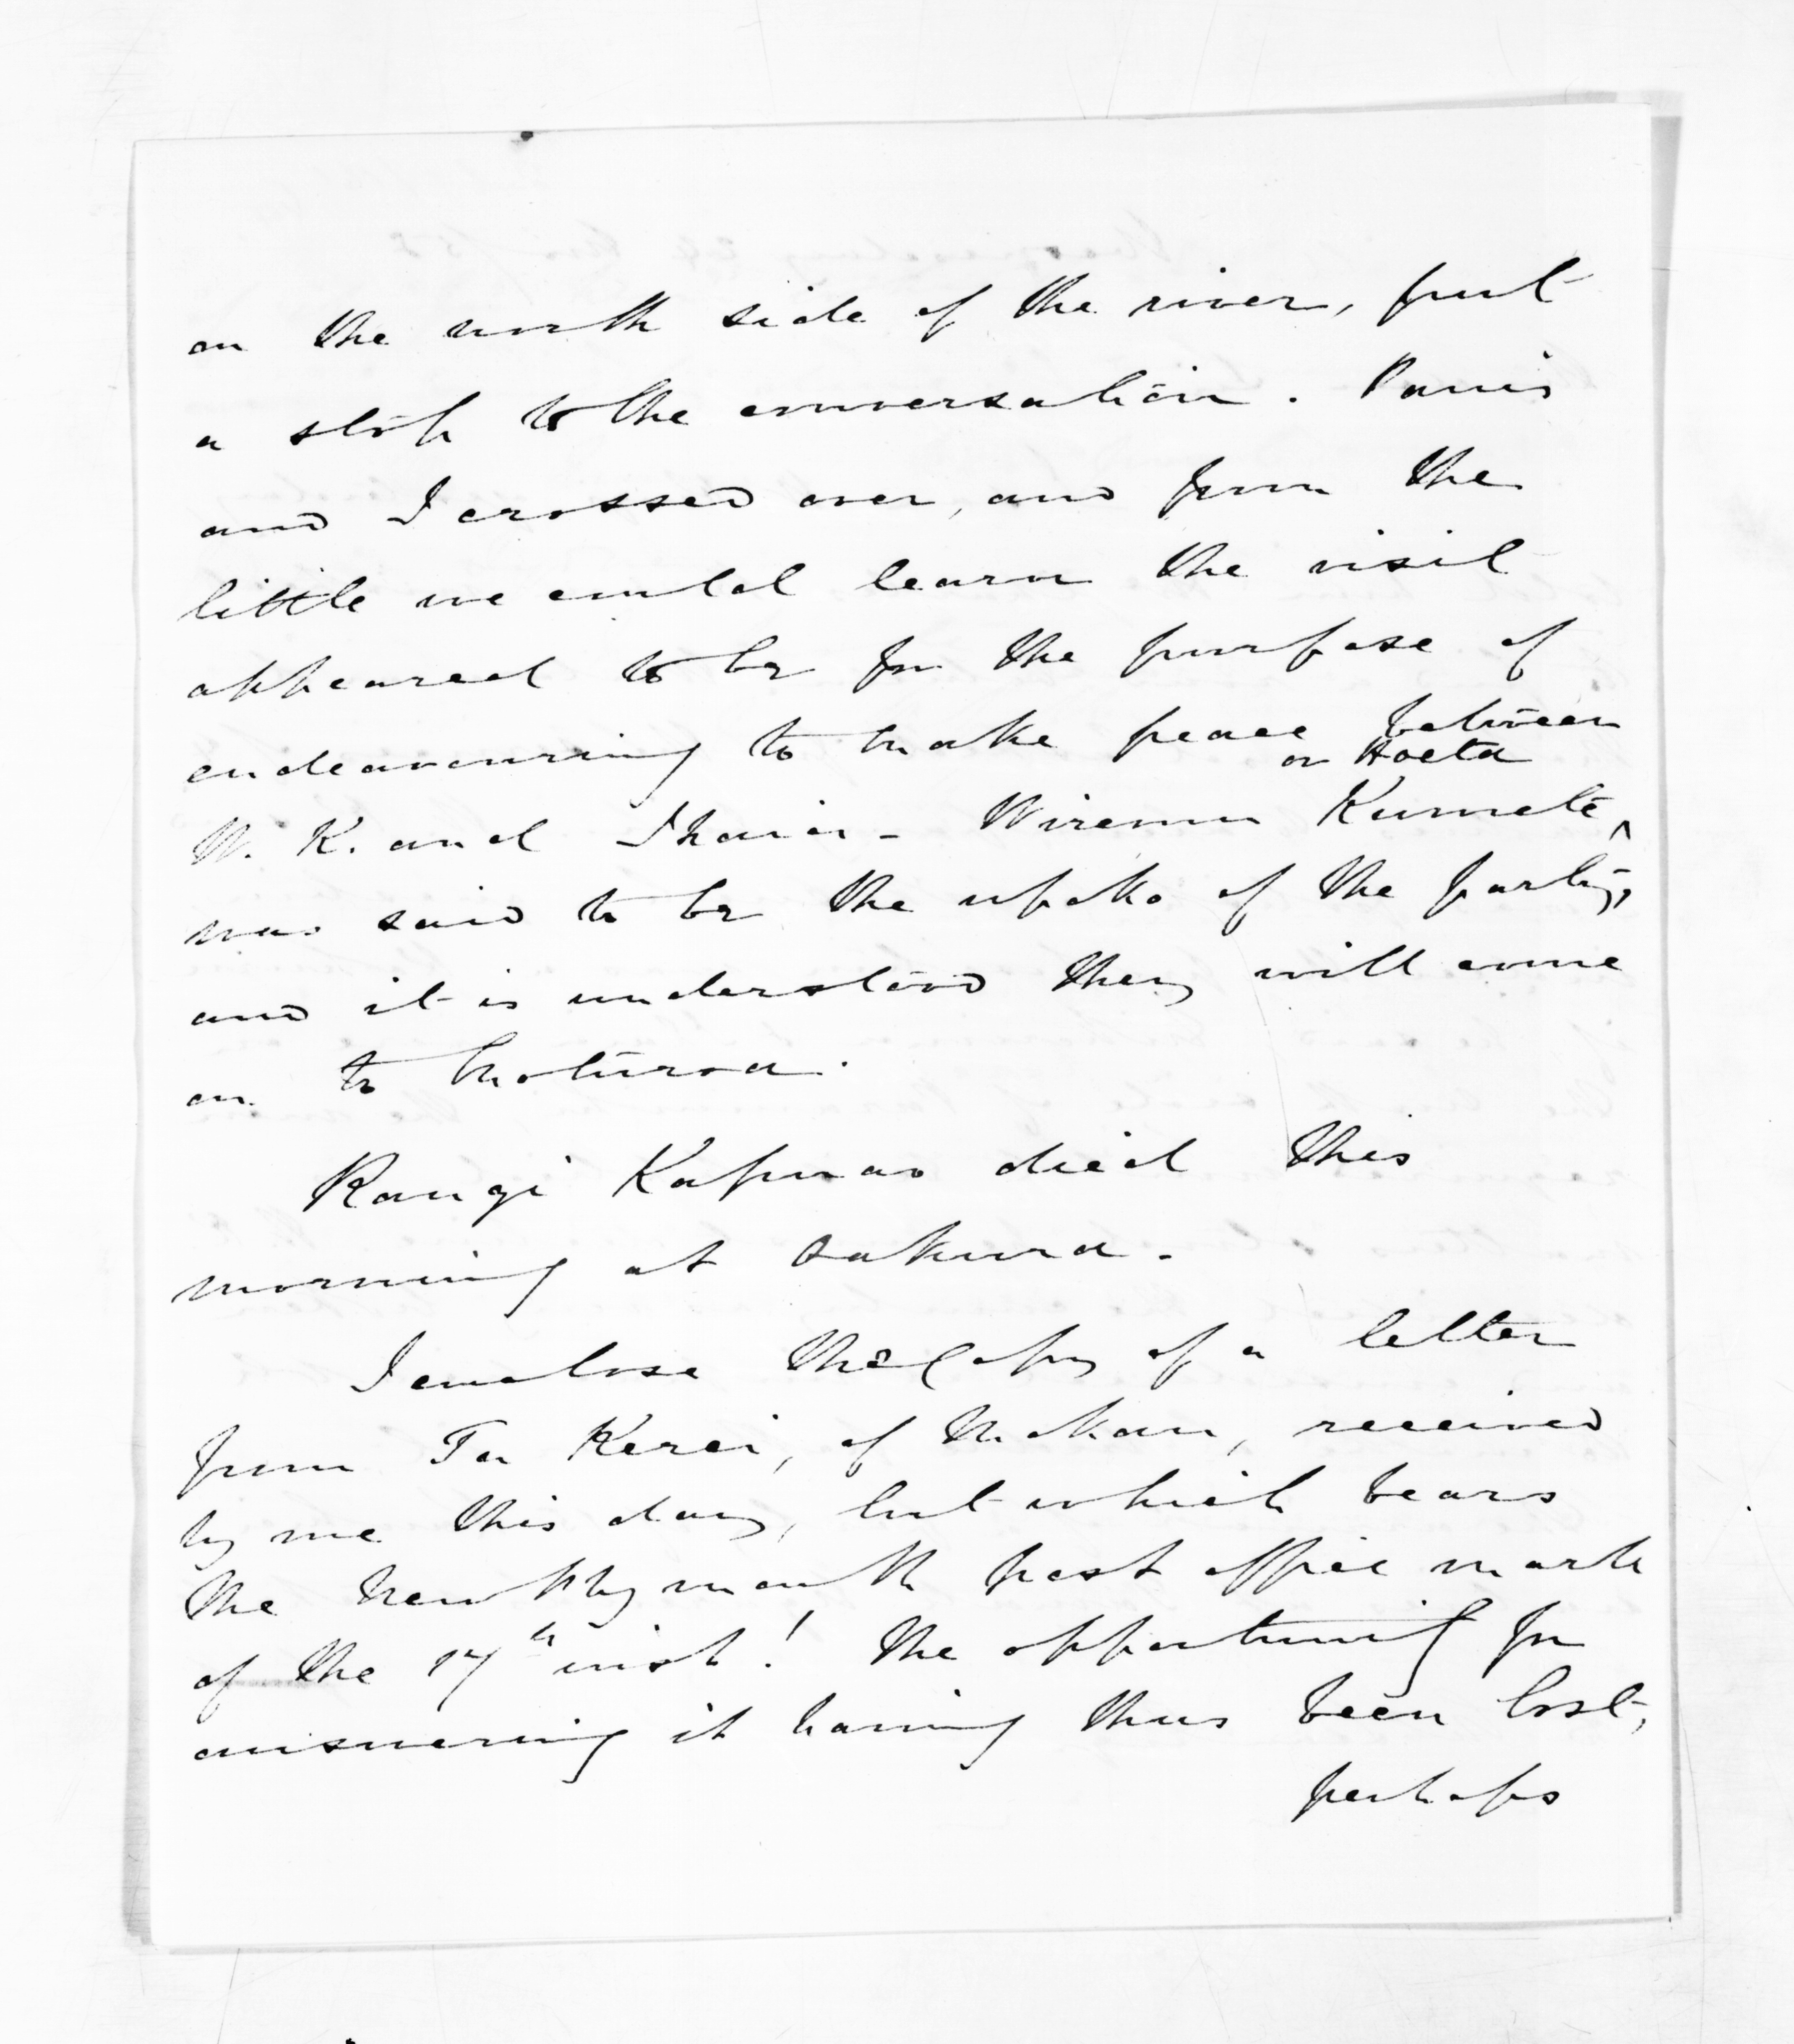 on the north side of the river, put
a stop to the conversation. Parris
and I crossed over, and from the
little we could learn the visit
appeared to be for the purpose of
endeavouring to make peace between
W. K. and Ihaia - Wiremu Kumete ^ or Hoeta
was said to be the upoko of the party,
and it is understood they will come
on to Moturoa.
Rangi Kapuao died this
morning at Oakura.
I enclose the copy of a letter
from Ta Kerei, of Mokau, received
by me this day, but which bears
the New Plymouth post office mark
of the 17th inst! The opportunity for
answering it having thus been lost,
perhaps